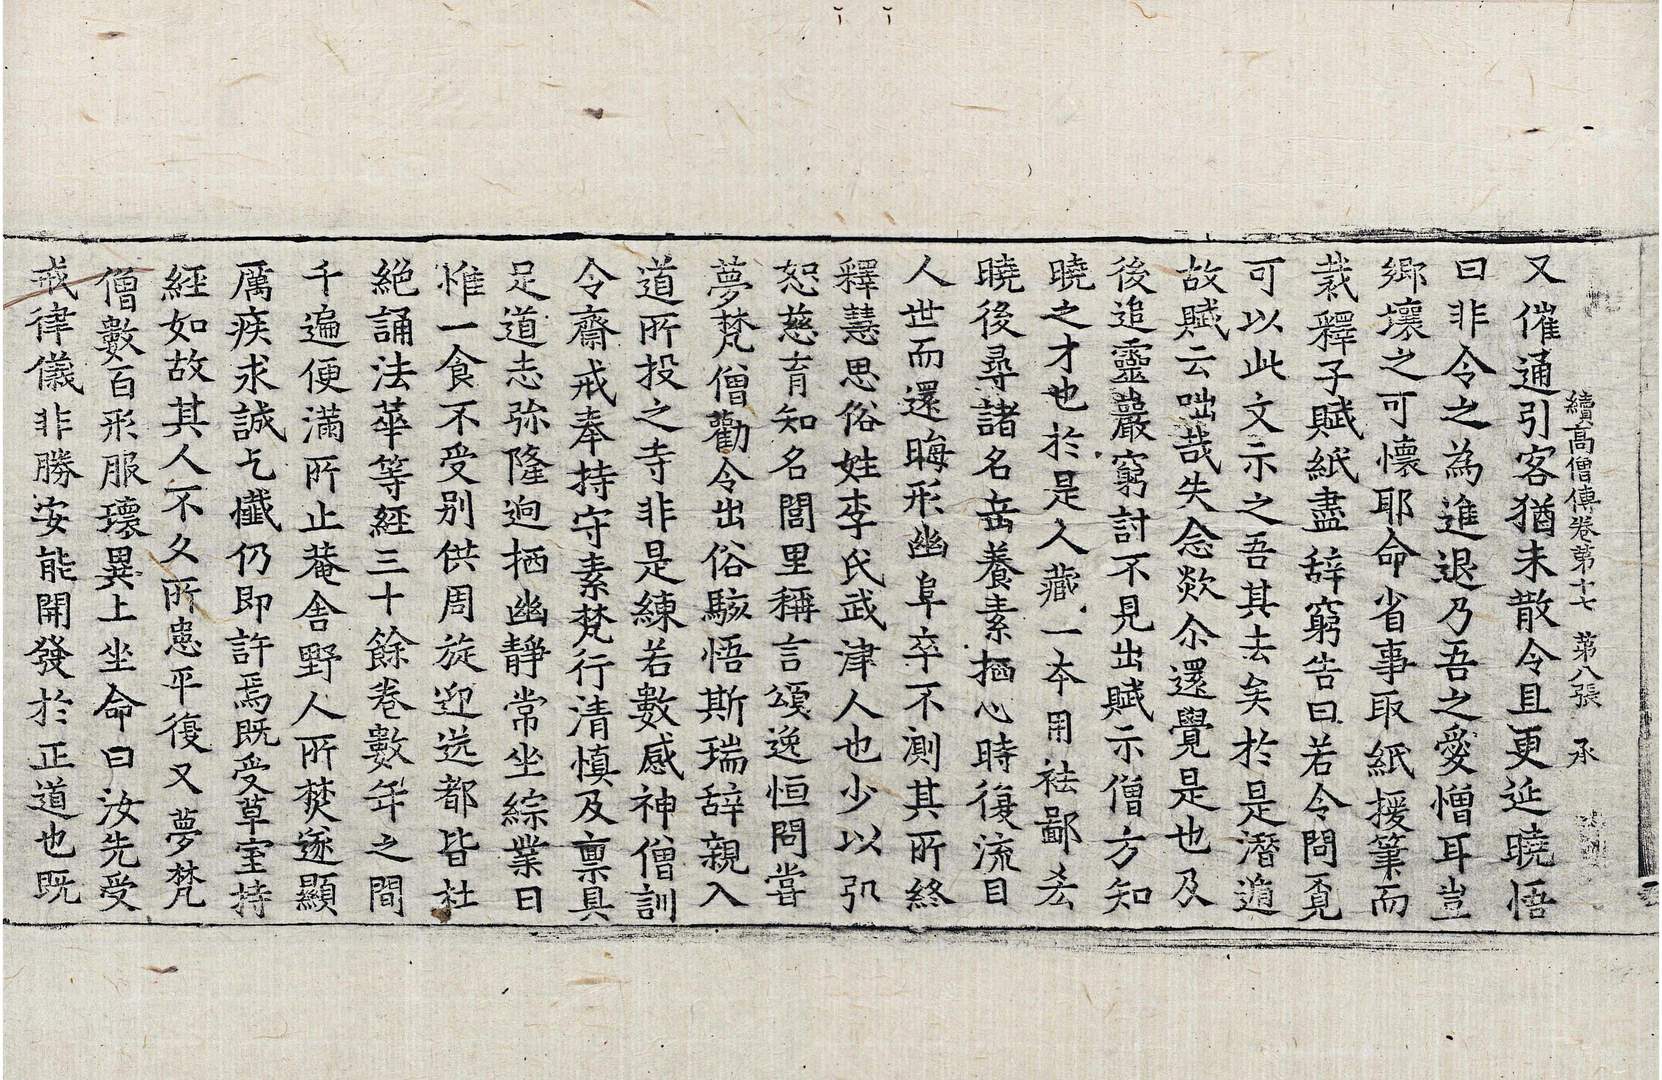 續高僧傳卷第十七 第八張 承
又催通引客猶未散令且更延曉悟
曰非令之為進退乃吾之愛憎耳豈
鄉壞之可懷耶命省事取紙援筆而
裁釋子賦紙盡辞窮告曰若令問覓
可以此文示之吾其去矣於是潛遁
故賦云咄哉失念欻尒還覺是也及
後追靈巖窮討不見出賦示僧方知
曉之才也於是人藏一夲用袪鄙悋
曉後尋諸名岳養素栖心時復流目
人世而還晦形幽阜卒不測其所終
釋慧思俗姓李氏武津人也少以弘
恕慈育知名閭里稱言頌逸恒問嘗
夢梵僧勸令出俗駭悟斯瑞辞親入
道所投之寺非是練若數感神僧訓
令齋戒奉持守素梵行清慎及禀具
足道志弥隆迥栖幽静常坐綜業日
惟一食不受别供周旋迎送都皆杜
絶誦法華等經三十餘卷數年之間
千遍便滿所止菴舎野人所焚遂顯
厲疾求誠乞懺仍即許焉既受草室持
經如故其人不久所患平復又夢梵
僧數百形服瓌異上坐命曰汝先受
戒律儀非勝安能開發於正道也既